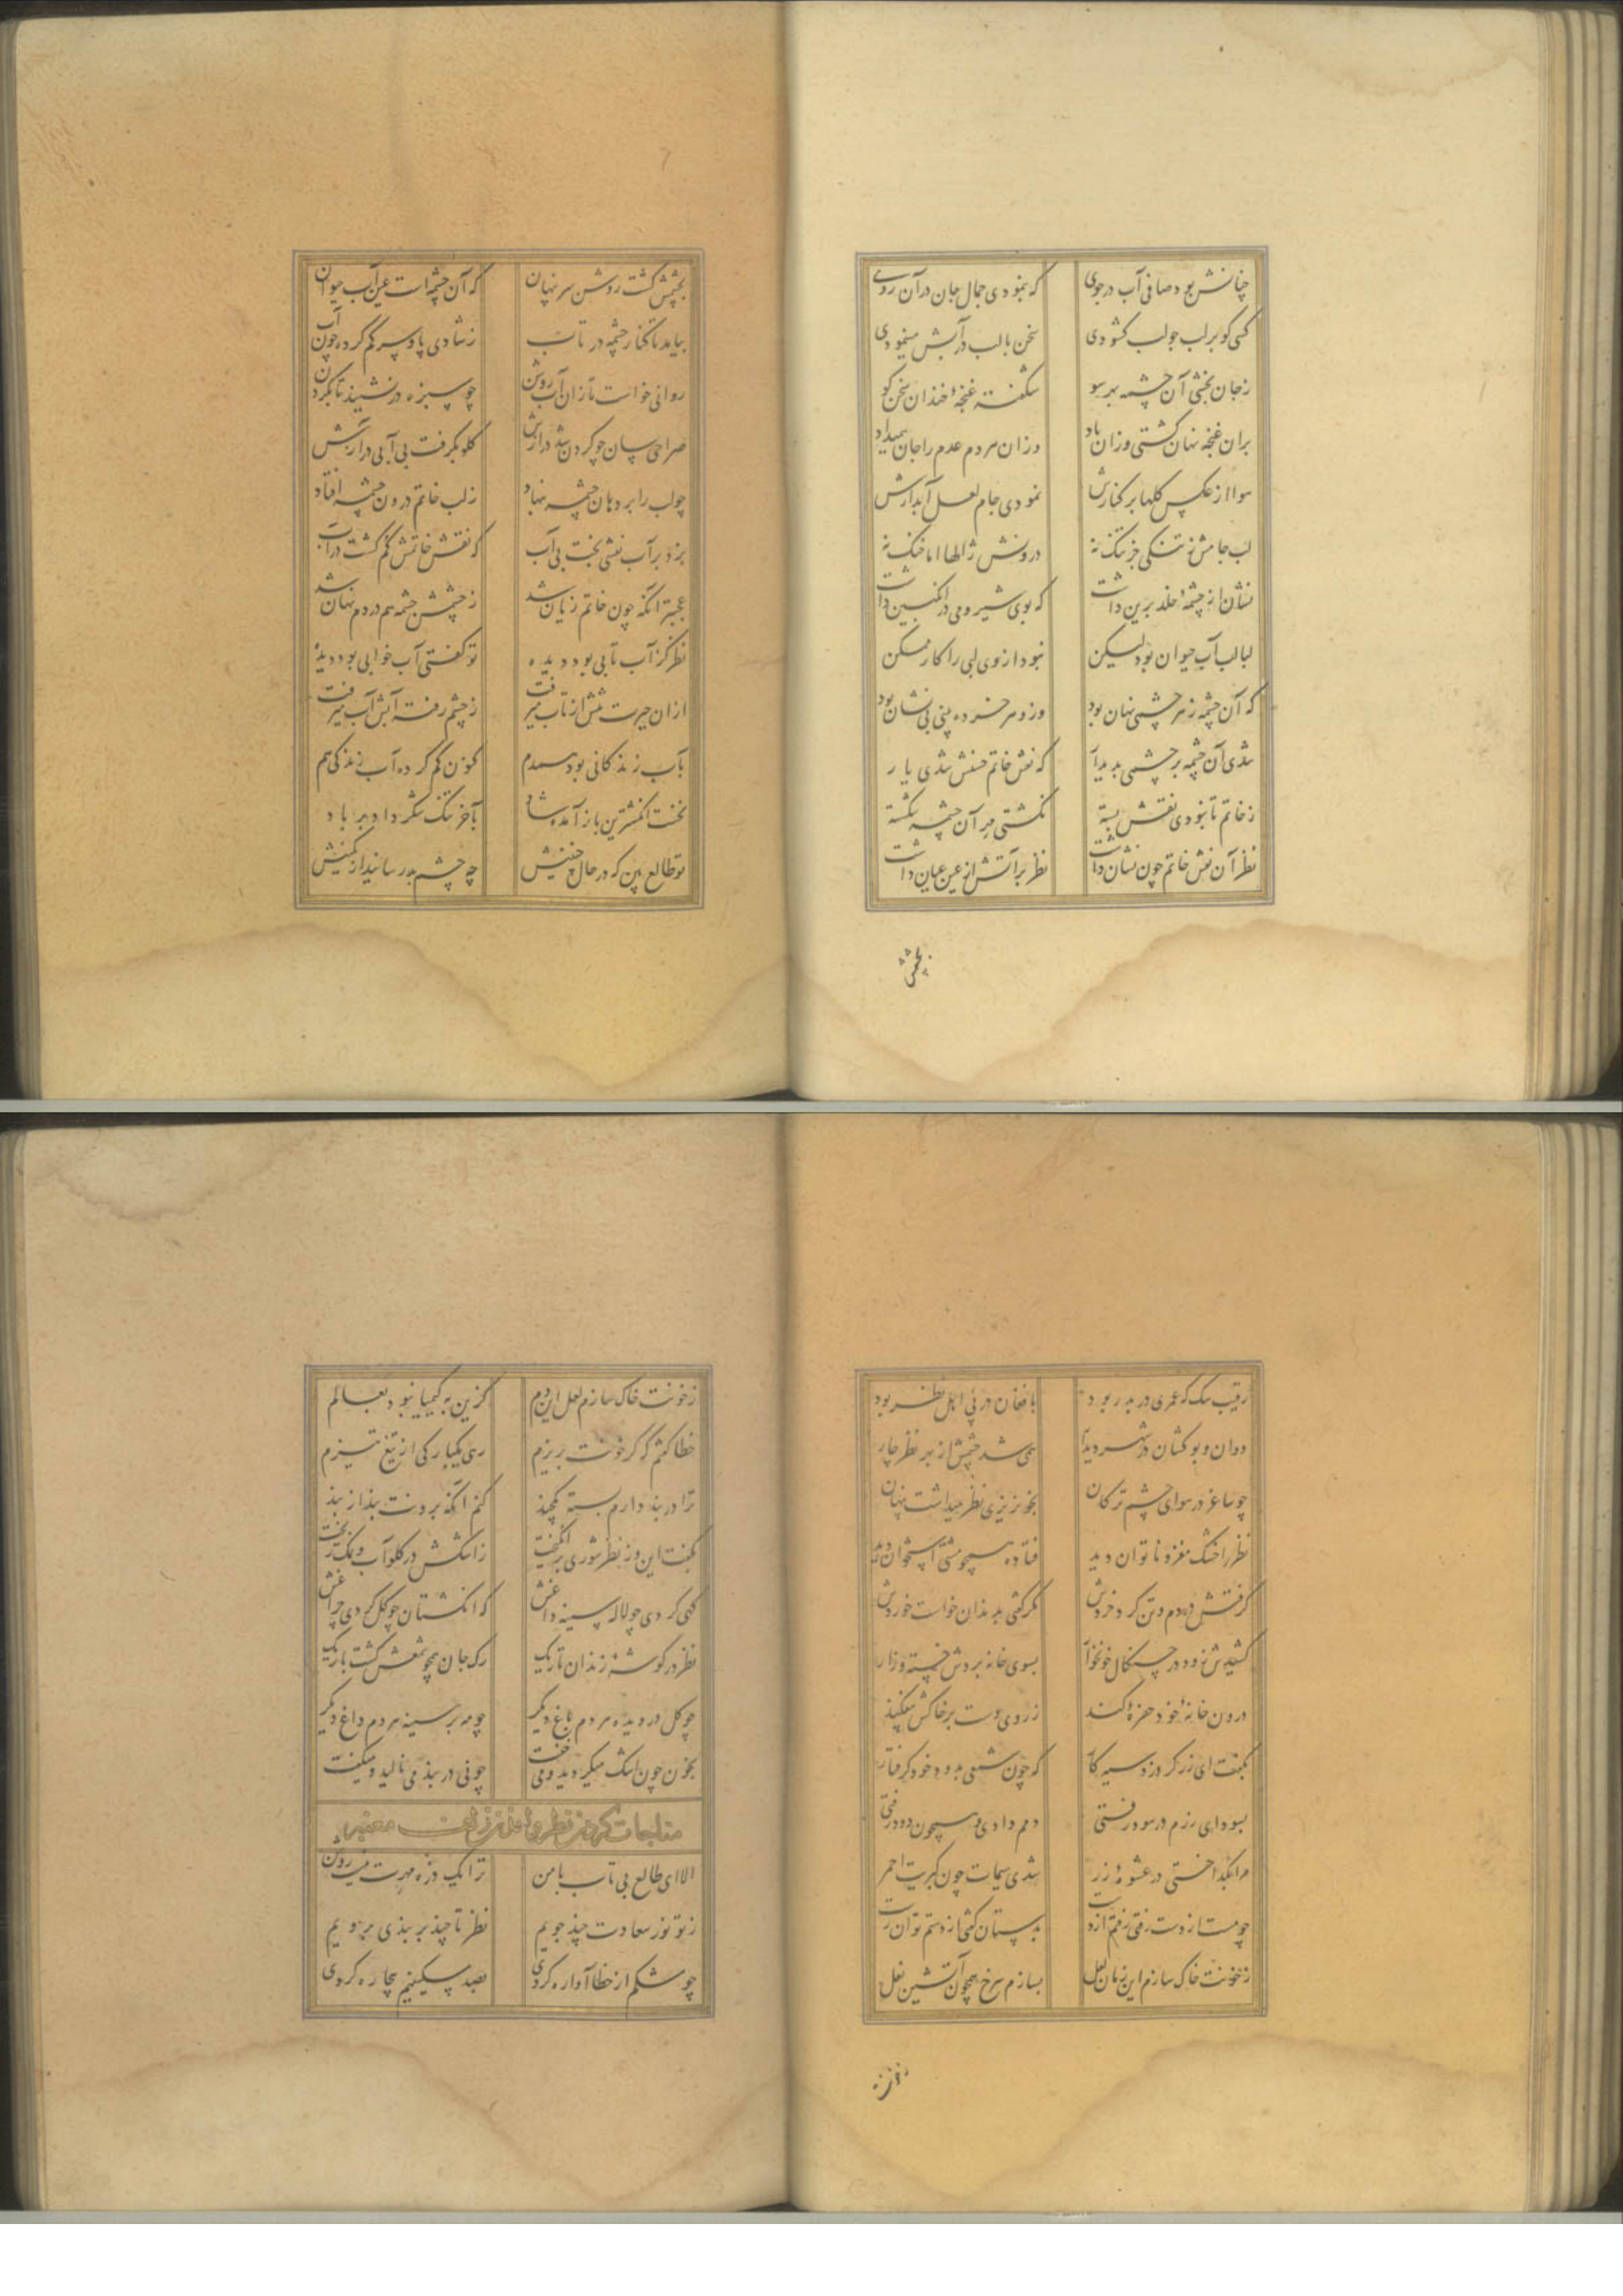 چنانش بود صافی آب در جوی که بنمودی جمال جان در آن روی
کسی کو بر لب جو لب گشودی سخن با لب در آبش مینمودی
ز جان بخشی آن چشمه بهر سو شکفته غنچهٔ خندان سخن گو
بران غنچه نهان گشتی وزان باد وزان مردم عدم را جان همیداد
هوا از عکس گلها بر کنارش نمودی جام لعل آبدارش
لب جامش نه تنگی جز تنگ نه درونش ژالها اما خنک نه
نشان از چشمهٔ خلد برین داشت که بوی شیر و می در انگبین داشت
لبالب آب حیوان بود لیکن نبود از وی لبی را کار ممکن
که آن چشمه ز هر چشمی نهان بود وزو هر خرده بینی بی نشان بود
شدی آن چشمه بر چشمی پدیدار که نقش خاتم حسنش شدی یار
ز خاتم تا نبودی نقش بسته نگشتی مهر آن چشمه شکسته
نظر آن نقش خاتم چون نشان داشت نظر بر آتش از عین عیان داشت
بچشمش
بچشمش گشت روشن سر پنهان که آن چشمه است عین آب حیوان
بیامد تا کنار چشمه در تاب ز شادی پا و سر گم کرده چون آب
روانی خواست تا زان آب روشن چو سبزه در نشیند تا بگردن
صراحی سان چو گردن شد درازش گلو بگرفت بی آبی در آزش
چو لب را بر دهان چشمه بنهاد ز لب خاتم درون چشمه افتاد
بزد بر آب نقشی بخت بی آب که نقش خاتمش گم گشت در آب
عجبتر آنکه چون خاتم زیان شد ز چشمش چشمه هم در دم نهان شد
نظر کز آب تابی بود دیده تو گفتی آب خوابی بود دیده
ازان حیرت تنش از تاب میرفت ز چشم رفته آبش آب میرفت
بآب زندگانی بود همدم کنون گم کرده آب زندگی هم
نخست انگشترین باز آمدش شاد بآخر تنگ شکر داد بر باد
تو طالع بین که در حال چنینش چه چشم بد رسانید از کمینش
رقیب سگ که عمری در بدر بود با فغان در پی اهل نظر بود
دوان و بو کشان در شهر و دیار همی شد چشمش از بهر نظر چار
چو ساغر در هوای چشم ترکان بخونریزی نظر میداشت پنهان
نظر را خشک مغز و ناتوان دید فتاده همچو مشتی استخوان دید
گرفتش در دم و تن کرد خردش مگر گفتی بدندان خواست خوردش
کشیدش زود در چنگال خونخوار بسوی خانه بردش خسته و زار
درون خانهٔ خود حفرهٔ کند ز روی دست بر خاکش بیفکند
بگفت ای زرگر دزد سیه کار که چون شمعی بدود خود گرفتار
بسودای زرم در سود رفتی دمم دادی و همچون دود رفتی
مرا بگداختی در عشوهٔ زر شدی سیمات چون کبریت احمر
چو مست از دست رفتی رفتم از دست بدستان کی از دستم توان رست
ز خونت خاک سازم این زمان لعل بسازم سرخ همچون آتشین نعل
ز خونت
ز خونت خاک سازم لعل این دم کزین به کیمیا نبود بعالم
خطا گفتم که گر خونت بریزم رهی یکبارگی از تیغ تیزم
ترا در بند دارم بسته یکچند کنم آنگه برونت بند از بند
بگفت این وز نظر شوری برانگیخت ز اشکش در گلو آب و نمک ریخت
گهی کردی چو لاله سینه داغش که انگشتان چو گل کردی چراغش
نظر در گوشهٔ زندان تاریک رگ جان همچو شمعش گشت باریک
چو گل در دیده هر دم باغ دیگر چو مه بر سینه هر دم داغ دیگر
بخون چون اشک میگردید و می خفت چو نی در بند می نالید و میگفت
مناجات کردن نظر
الا ای طالع بی تاب با من ترا یک ذره مهرت نیست روشن
ز تو نور سعادت چند جویم نظر تا چند بر بندی برویم
چو مشکم از خطا آواره کردی بصد مسکینیم بیچاره کردی